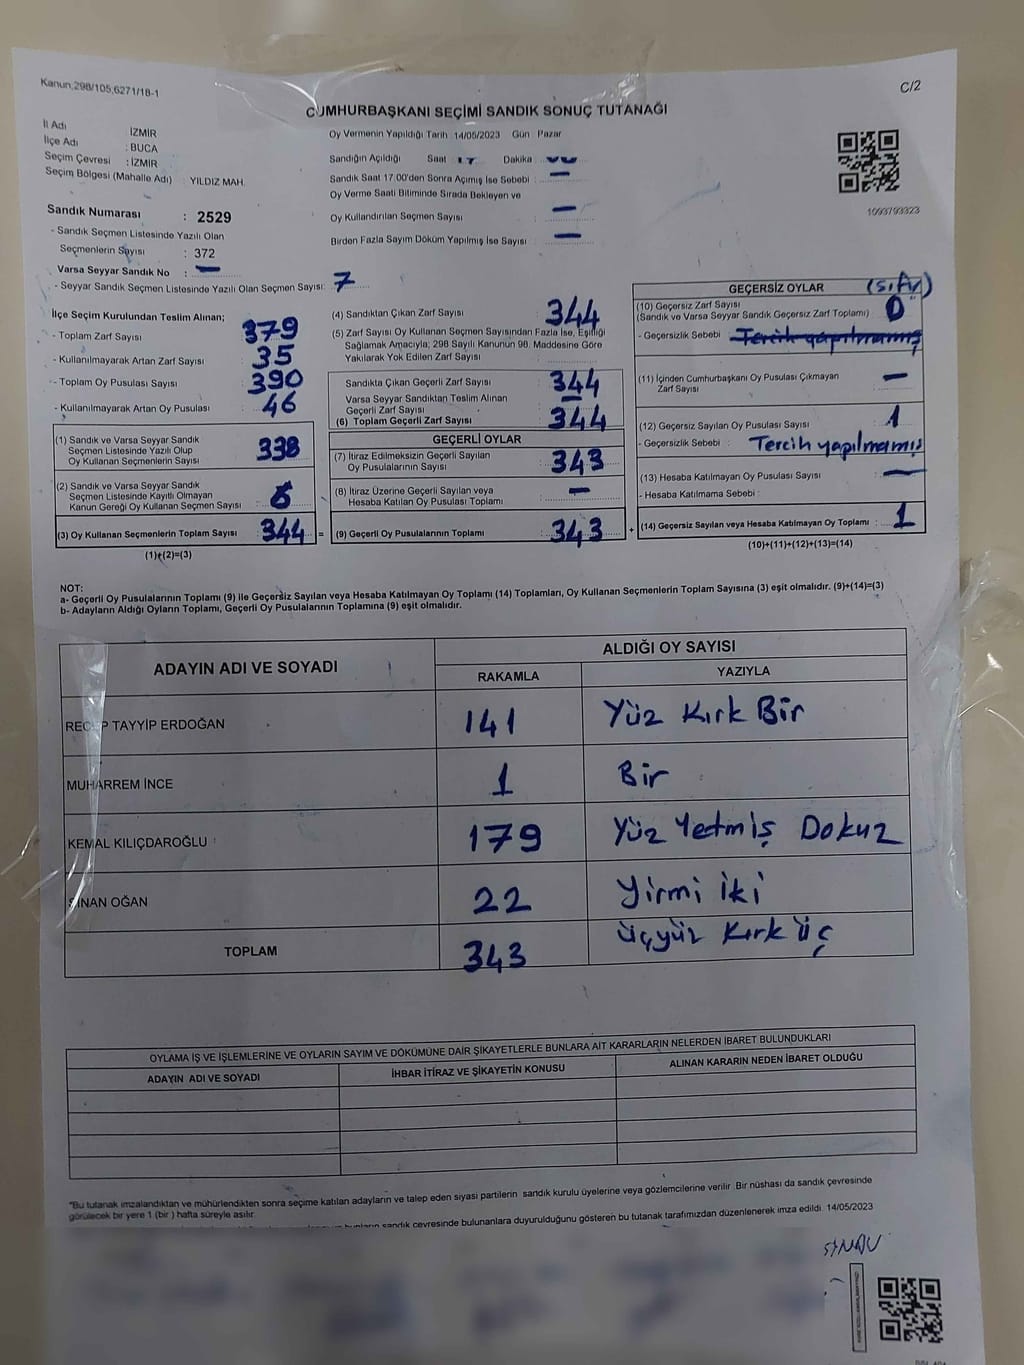 Kanun,298/105,6271/18-1
C/2
CUMHURBAŞKANI SEÇİMİ SANDIK SONUÇ TUTANAĞI
İl Adı : İZMİR
İlçe Adı : BUCA
Seçim Çevresi : İZMİR
Seçim Bölgesi (Mahalle Adı) : YILDIZ MAH.
Oy Vermenin Yapıldığı Tarih :14/05/2023 Gün : Pazar
Sandığın Açıldığı Saat 17 Dakika 00
Sandık Saat 17.00'den Sonra Açılmış İse Sebebi : —
Oy Verme Saati Bitiminde Sırada Bekleyen ve
Oy Kullandırılan Seçmen Sayısı : —
Birden Fazla Sayım Döküm Yapılmış İse Sayısı : —
1093793323
Sandık Numarası : 2529
- Sandık Seçmen Listesinde Yazılı Olan
Seçmenlerin Sayısı : 372
Varsa Seyyar Sandık No : —
- Seyyar Sandık Seçmen Listesinde Yazılı Olan Seçmen Sayısı: 7
İlçe Seçim Kurulundan Teslim Alınan;
- Toplam Zarf Sayısı : 379
- Kullanılmayarak Artan Zarf Sayısı : 35
- Toplam Oy Pusulası Sayısı : 390
- Kullanılmayarak Artan Oy Pusulası : 46
(1) Sandık ve Varsa Seyyar Sandık
Seçmen Listesinde Yazılı Olup
Oy Kullanan Seçmenlerin Sayısı : 338
(2) Sandık ve Varsa Seyyar Sandık
Seçmen Listesinde Kayıtlı Olmayan
Kanun Gereği Oy Kullanan Seçmen Sayısı : 6
(3) Oy Kullanan Seçmenlerin Toplam Sayısı : 344 =
(1)+(2)=(3)
(4) Sandıktan Çıkan Zarf Sayısı : 344
(5) Zarf Sayısı Oy Kullanan Seçmen Sayısından Fazla İse, Eşitliği
Sağlamak Amacıyla; 298 Sayılı Kanunun 98. Maddesine Göre
Yakılarak Yok Edilen Zarf Sayısı :
Sandıkta Çıkan Geçerli Zarf Sayısı : 344
Varsa Seyyar Sandıktan Teslim Alınan
Geçerli Zarf Sayısı : —
(6) Toplam Geçerli Zarf Sayısı : 344
GEÇERLİ OYLAR
(7) İtiraz Edilmeksizin Geçerli Sayılan
Oy Pusulalarının Sayısı : 343
(8) İtiraz Üzerine Geçerli Sayılan veya
Hesaba Katılan Oy Pusulası Toplamı : —
(9) Geçerli Oy Pusulalarının Toplamı : 343 +
GEÇERSİZ OYLAR (sıfır)
(10) Geçersiz Zarf Sayısı
(Sandık ve Varsa Seyyar Sandık Geçersiz Zarf Toplamı) : 0
- Geçersizlik Sebebi : Tercih yapılmamış
(11) İçinden Cumhurbaşkanı Oy Pusulası Çıkmayan
Zarf Sayısı : —
(12) Geçersiz Sayılan Oy Pusulası Sayısı : 1
- Geçersizlik Sebebi : Tercih yapılmamış
(13) Hesaba Katılmayan Oy Pusulası Sayısı : —
- Hesaba Katılmama Sebebi :
(14) Geçersiz Sayılan veya Hesaba Katılmayan Oy Toplamı : 1
(10)+(11)+(12)+(13)=(14)
NOT:
a- Geçerli Oy Pusulalarının Toplamı (9) ile Geçersiz Sayılan veya Hesaba Katılmayan Oy Toplamı (14) Toplamları, Oy Kullanan Seçmenlerin Toplam Sayısına (3) eşit olmalıdır. (9)+(14)=(3)
b- Adayların Aldığı Oyların Toplamı, Geçerli Oy Pusulalarının Toplamına (9) eşit olmalıdır.
ADAYIN ADI VE SOYADI
ALDIĞI OY SAYISI
RAKAMLA YAZIYLA
RECEP TAYYİP ERDOĞAN 141 Yüz Kırk Bir
MUHARREM İNCE 1 Bir
KEMAL KILIÇDAROĞLU 179 Yüz Yetmiş Dokuz
SİNAN OĞAN 22 Yirmi İki
TOPLAM 343 Üçyüz Kırk Üç
OYLAMA İŞ VE İŞLEMLERİNE VE OYLARIN SAYIM VE DÖKÜMÜNE DAİR ŞİKAYETLERLE BUNLARA AİT KARARLARIN NELERDEN İBARET BULUNDUKLARI
ADAYIN ADI VE SOYADI İHBAR İTİRAZ VE ŞİKAYETİN KONUSU ALINAN KARARIN NEDEN İBARET OLDUĞU
*Bu tutanak imzalandıktan ve mühürlendikten sonra seçime katılan adayların ve talep eden siyasi partilerin sandık kurulu üyelerine veya gözlemcilerine verilir. Bir nüshası da sandık çevresinde
görülecek bir yere 1 (bir) hafta süreyle asılır.
bunların sandık çevresinde bulunanlara duyurulduğunu gösteren bu tutanak tarafımızdan düzenlenerek imza edildi. 14/05/2023